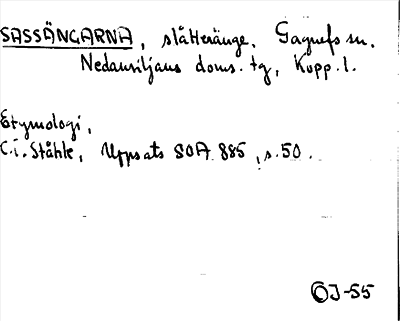 SASSÄNGARNA, slåtteränge. Gagnefs sn.
Nedansiljans doms. tg, Kopp. l.
Etymologi,
C.I. Ståhle, Uppsats SOA 885, s. 50.
OJ-55